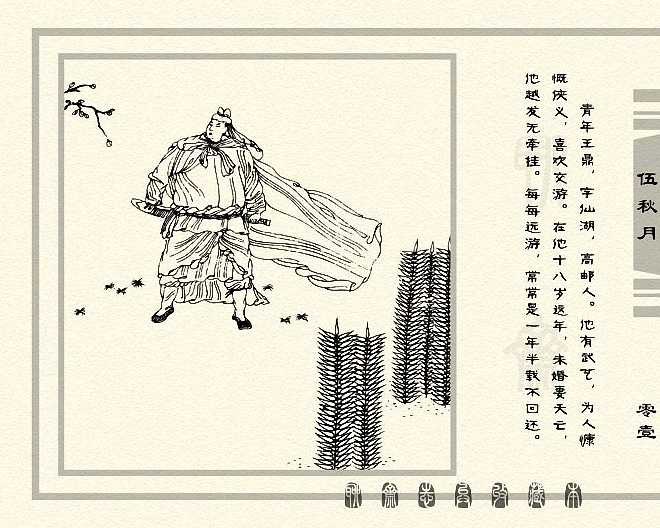 青年王鼎，字仙湖，高邮人。他有武艺，为人慷
慨侠义，喜欢交游。在他十八岁这年，未婚妻夭亡，
他越发无牵挂。每每远游，常常是一年半载不回还。
伍秋月
零壹